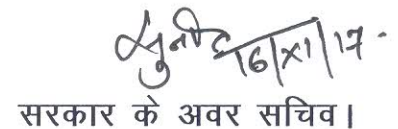 सुनील 16/XI/17.
सरकार के अवर सचिव।